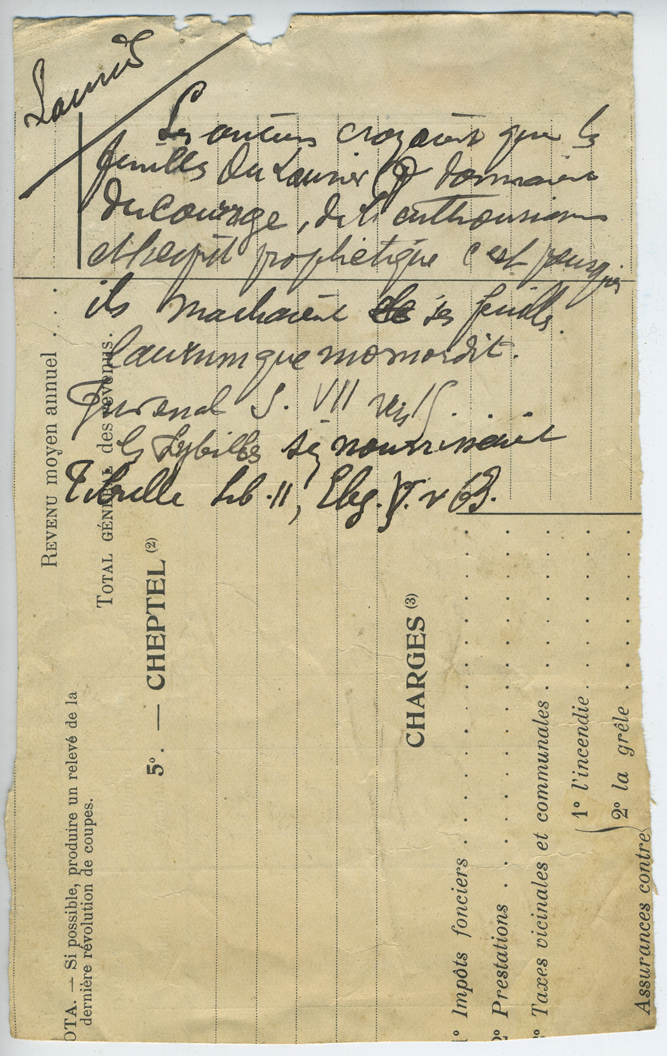 Laurier
Les anciens croyaient que les
feuilles du Laurier donnaient
du courage, de l'enthousiasme
et l'esprit prophetique c'est pourquoi
ils machaient ses feuilles.
laurumque momordit.
Juvenal S. VII vers
les Sybilles s'en nourrissaient
Tibulle Lib. II, Eleg. V. v 63.
REVENU moyen annuel . . .
TOTAL GÉNÉRAL des revenus.
5º. — CHEPTEL (2)
OTA. — Si possible, produire un relevé de la
dernière révolution de coupes.
CHARGES (3)
1º Impôts fonciers . . . . . . . . .
2º Prestations . . . . . . . . . .
3º Taxes vicinales et communales . . . .
Assurances contre
1º l'incendie . . . .
2º la grêle . . . .